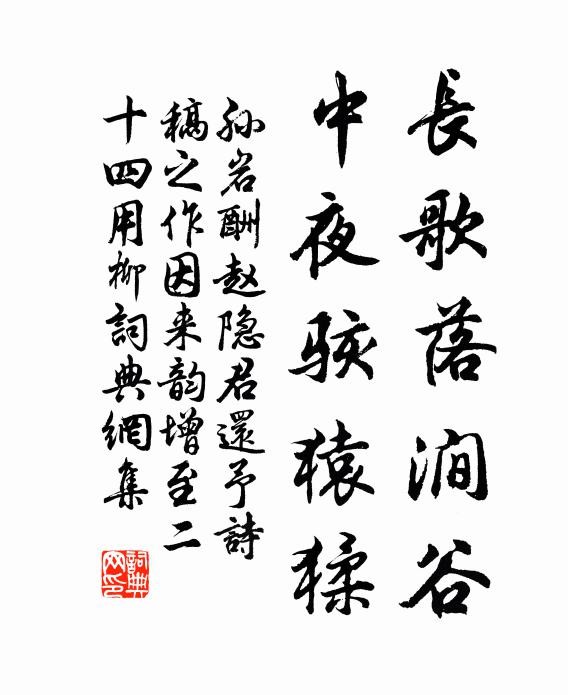 長歌落澗谷
中夜駭猿猱
孙岩酬赵隐君還予詩
稿之作因来韵增至二
十四用柳詞典網集